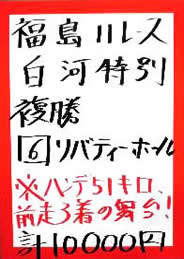 福島11レース
白河特別
複勝
6 リバティーホール
※ハンデ51キロ、
前走3着の舞台!
計10000円